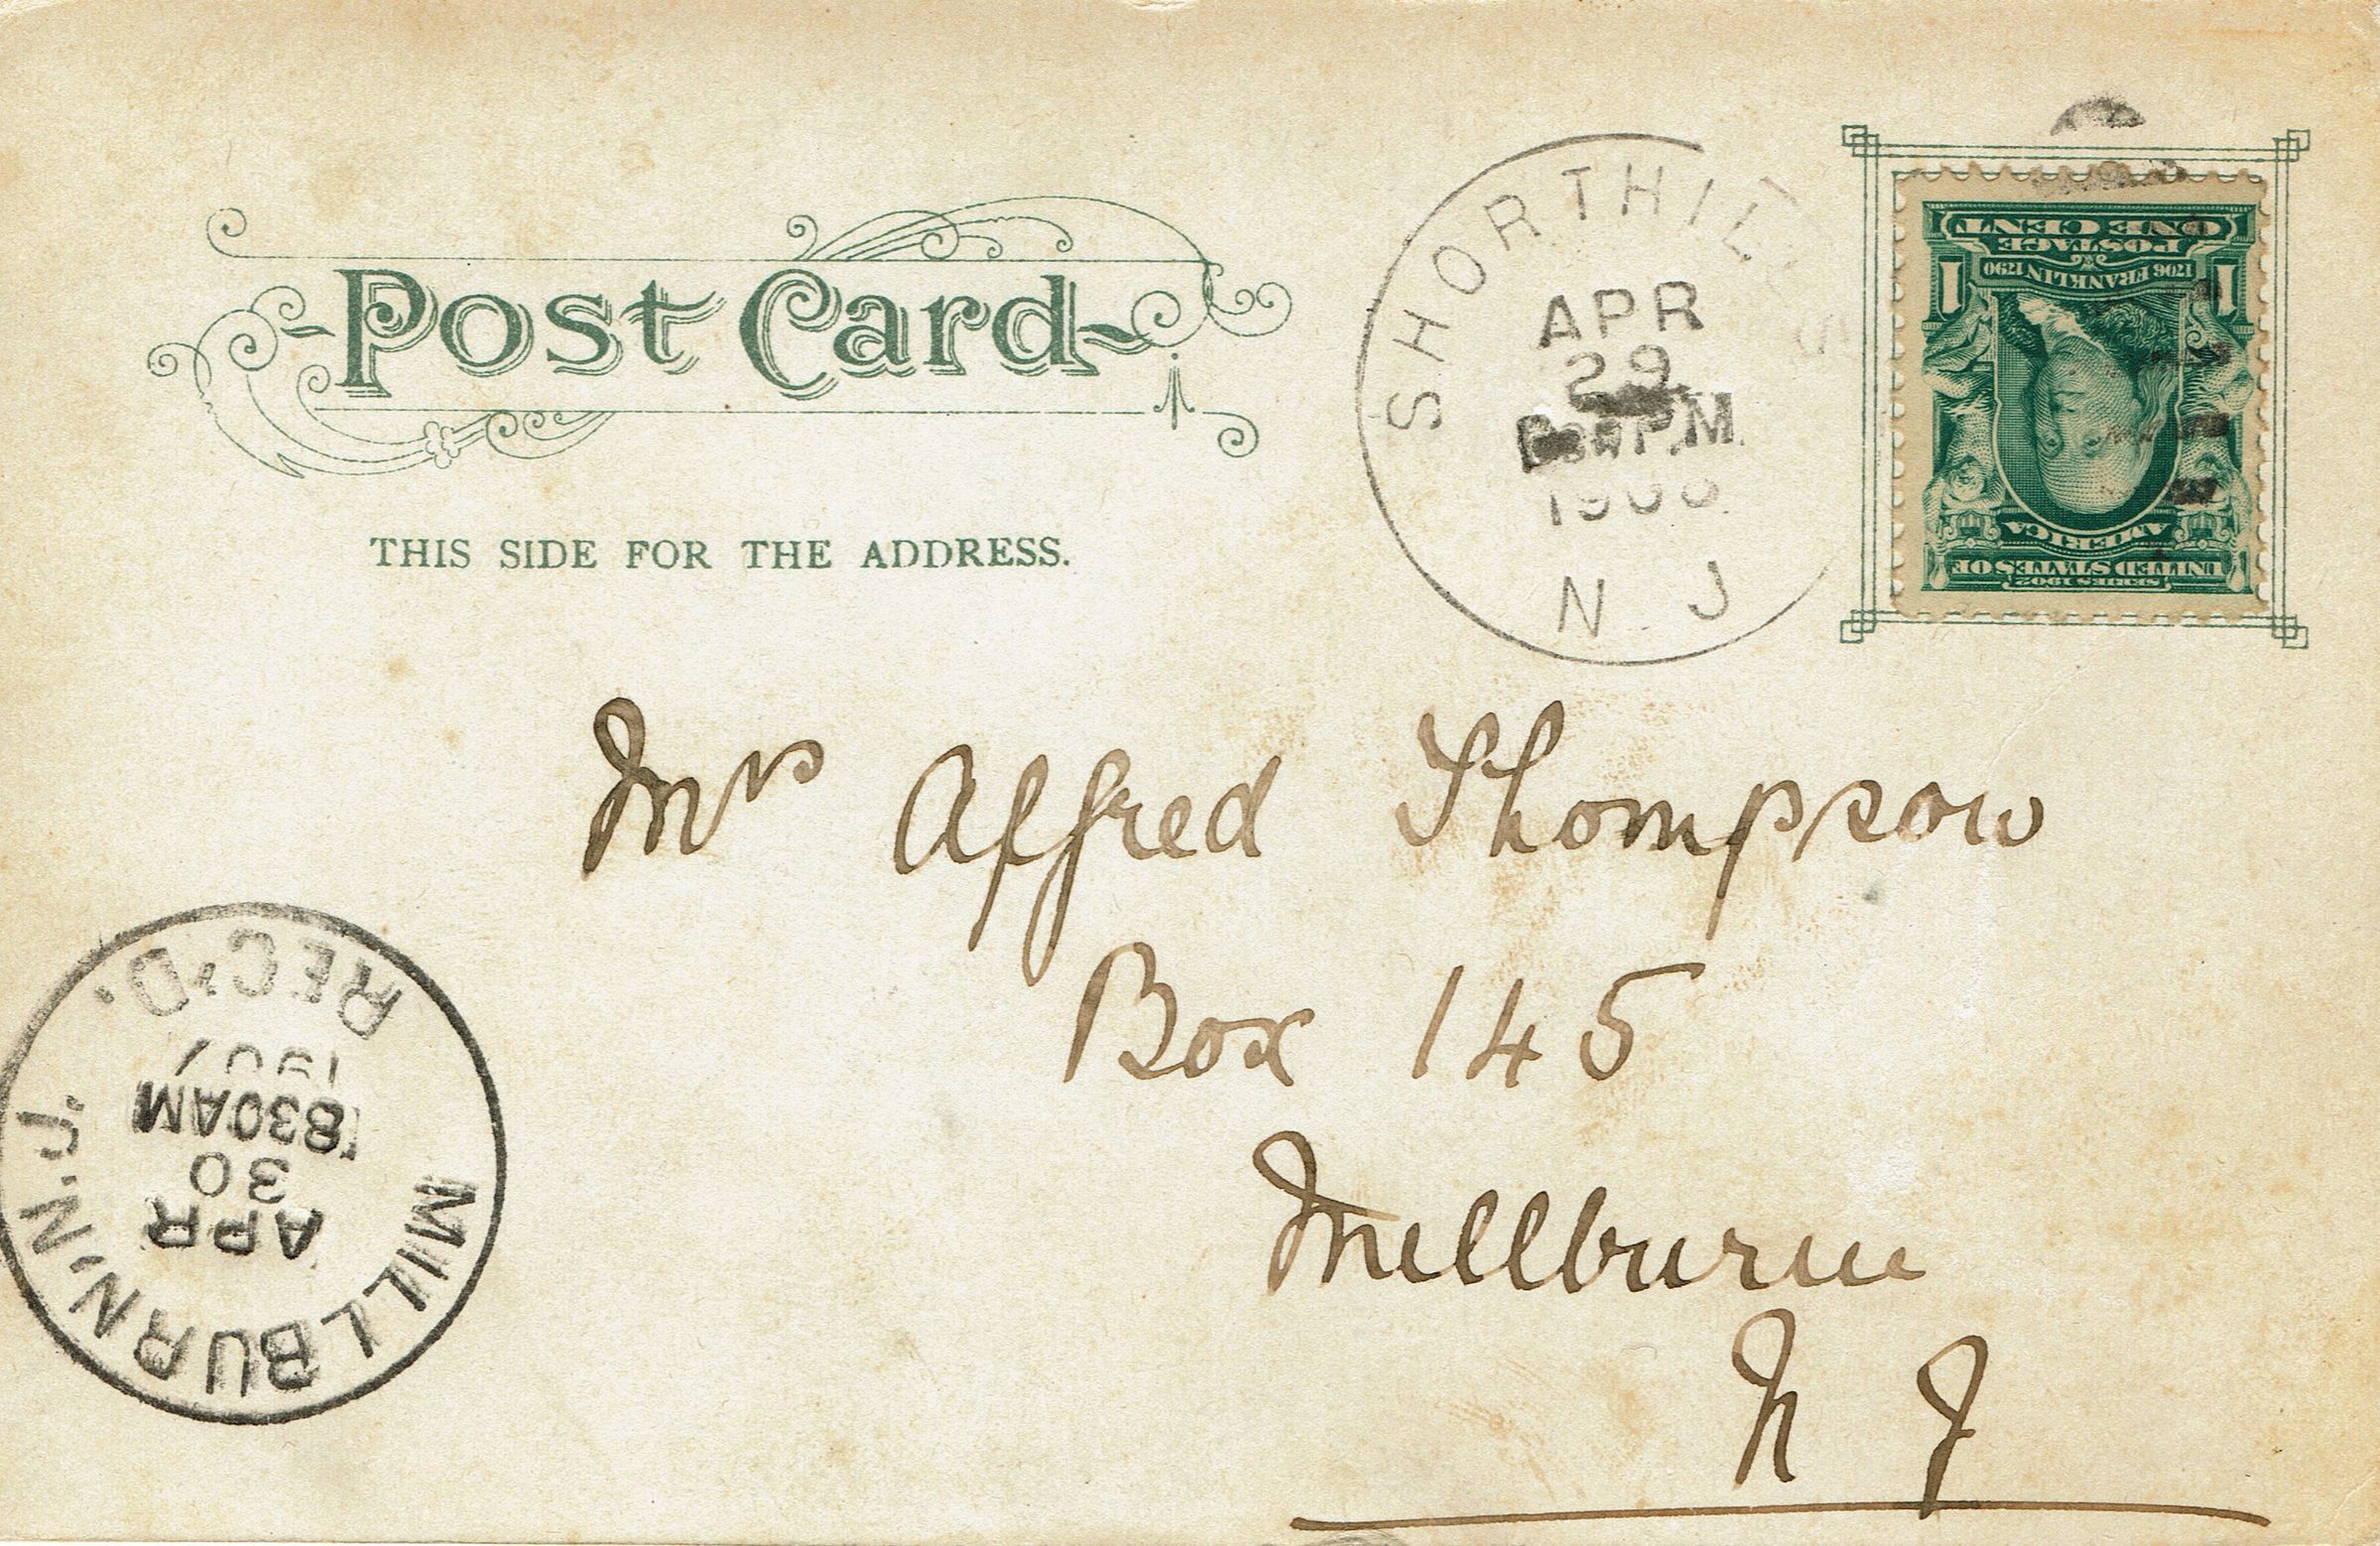 Post Card
THIS SIDE FOR THE ADDRESS.
SHORTHILLS
APR
29
PM
N J
ONE CENT
POSTAGE
1706 FRANKLIN 1790
1 1
AMERICA
UNITED STATES OF
SERIES 1902
Mrs Alfred Thompson
Box 145
Millburn
N J
MILLBURN, N.J.
APR
30
830AM
1907
REC'D.